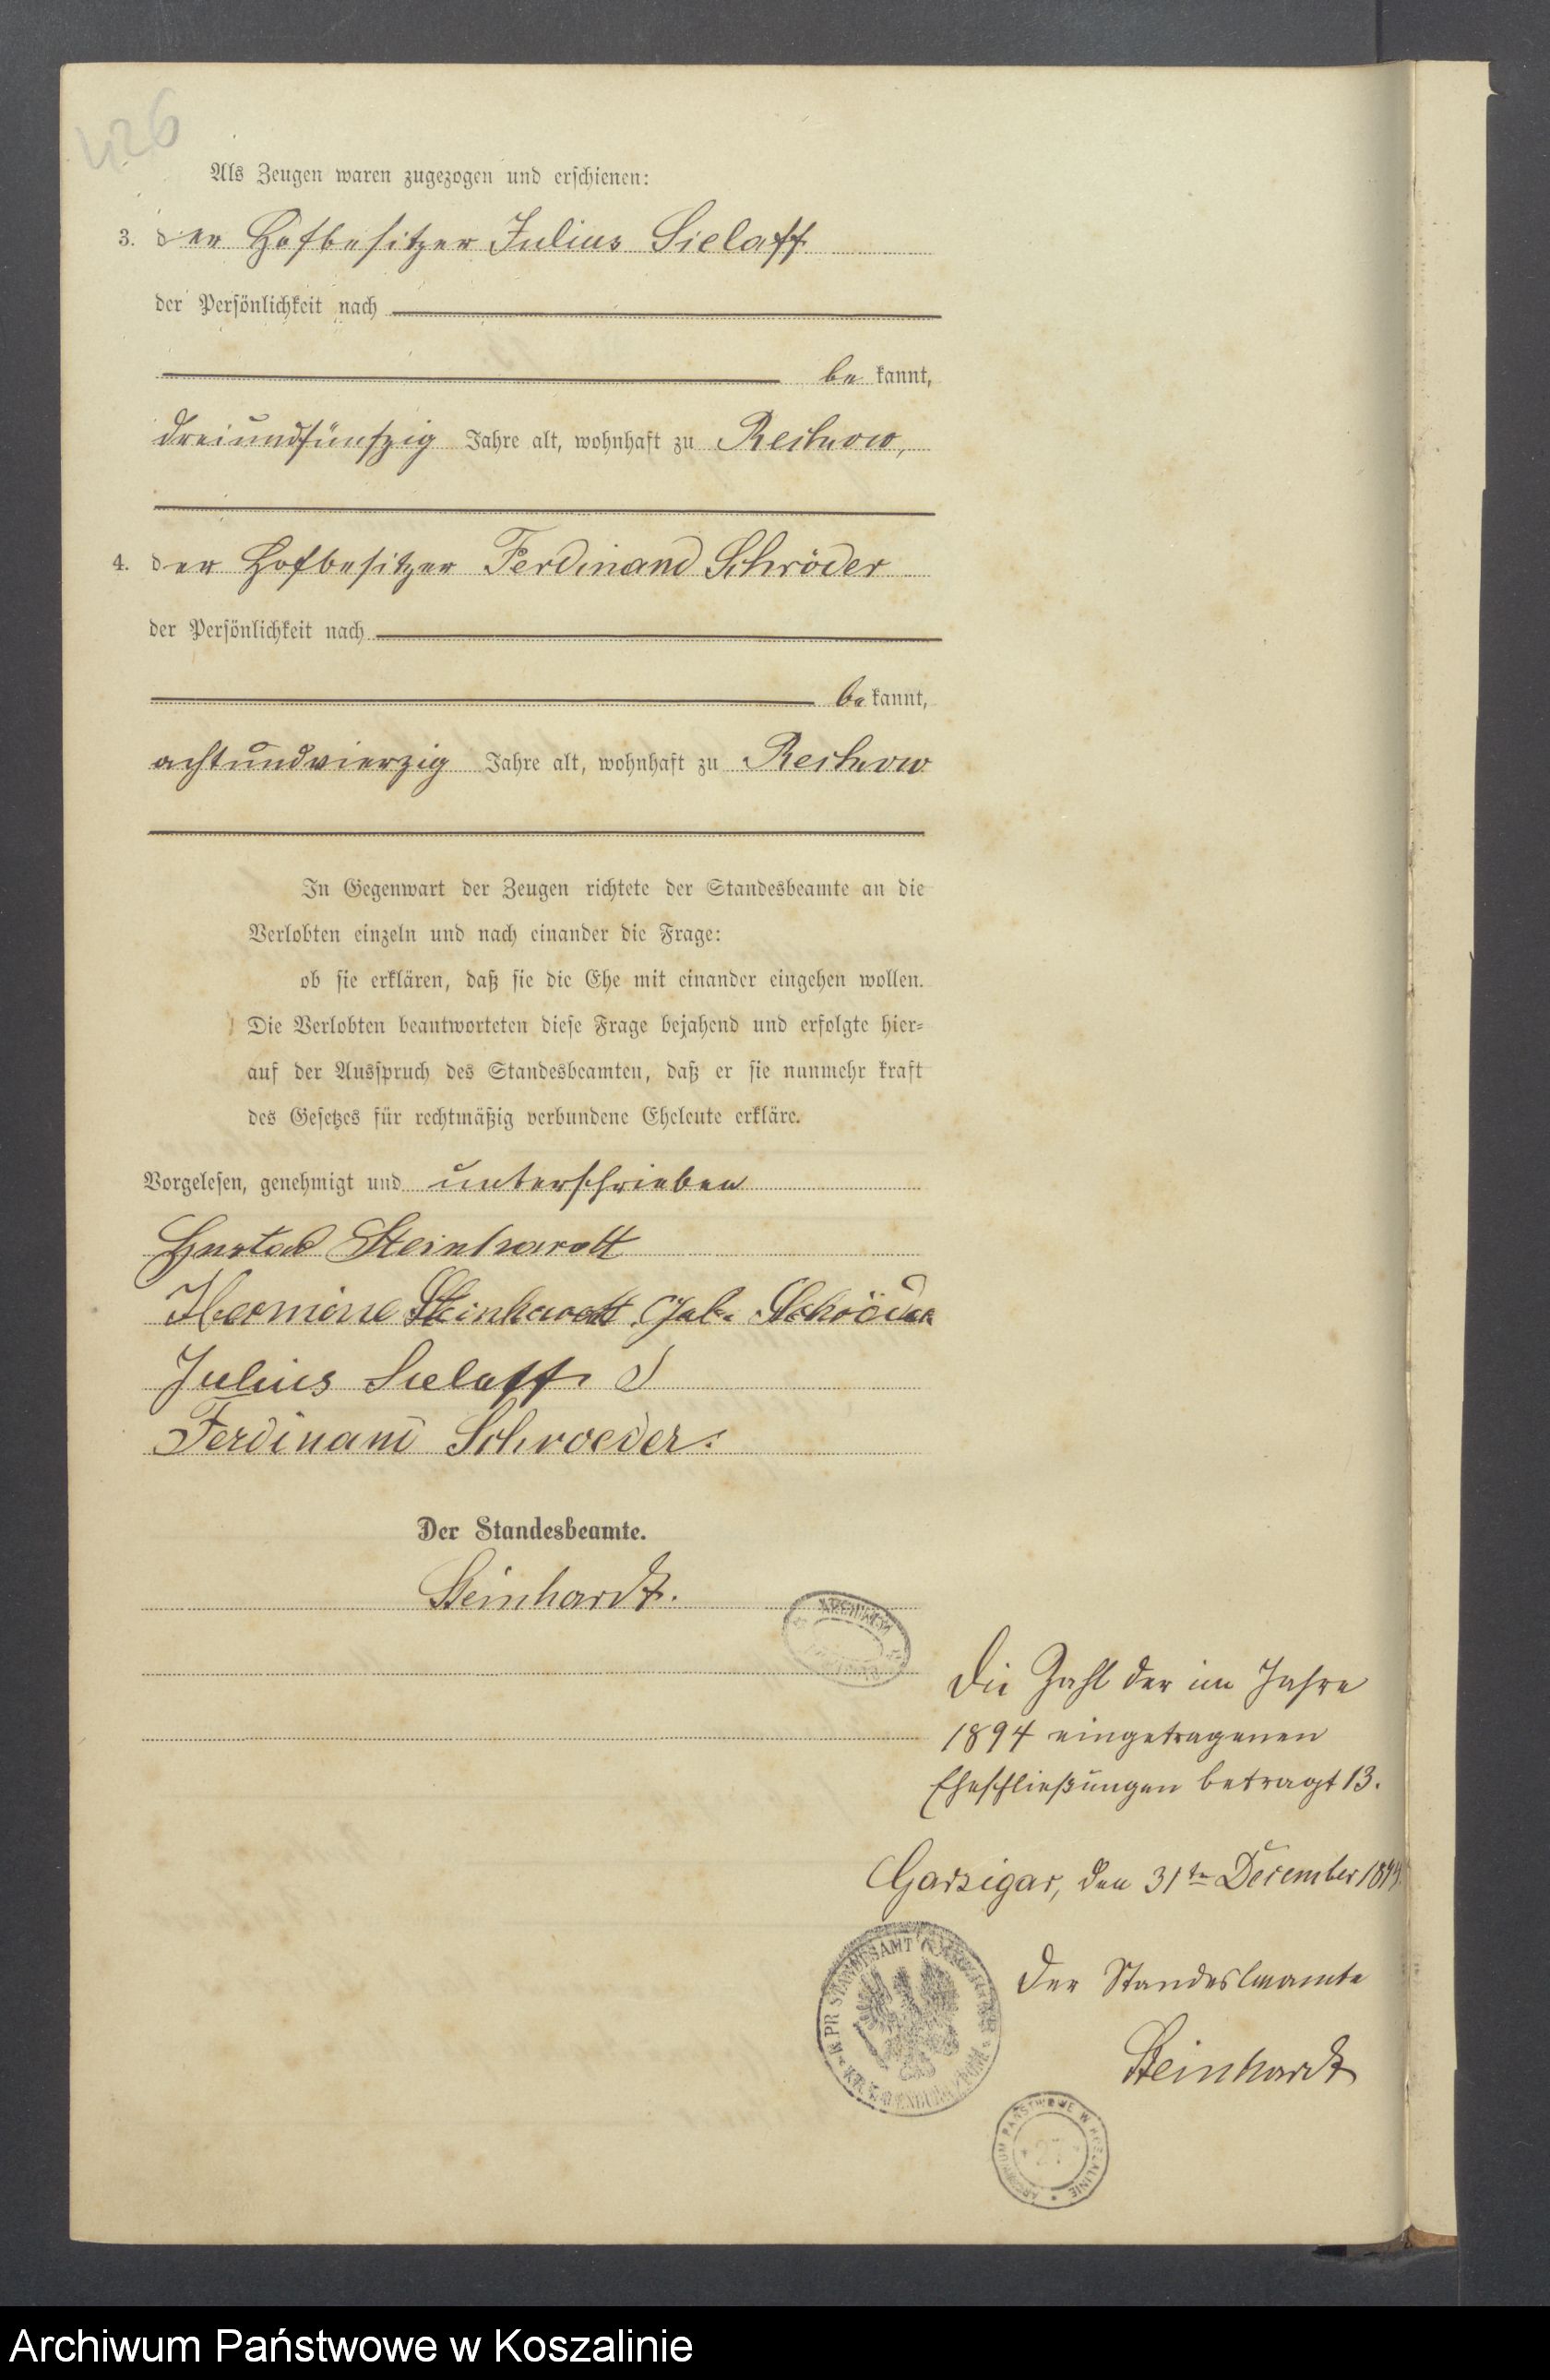 426
Als Zeugen waren zugezogen und erschienen:
3. der Hofbesitzer Julius Sielaff
der Persönlichkeit nach
be kannt,
dreiundfünfzig Jahre alt, wohnhaft zu Reckow,
4. der Hofbesitzer Ferdinand Schröder
der Persönlichkeit nach
be kannt,
achtundvierzig Jahre alt, wohnhaft zu Reckow
In Gegenwart der Zeugen richtete der Standesbeamte an die
Verlobten einzeln und nach einander die Frage:
ob sie erklären, daß sie die Ehe mit einander eingehen wollen.
Die Verlobten beantworteten diese Frage bejahend und erfolgte hier-
auf der Ausspruch des Standesbeamten, daß er sie nunmehr kraft
des Gesetzes für rechtmäßig verbundene Eheleute erkläre.
Vorgelesen, genehmigt und unterschrieben
Gustav Steinhardt
Hermine Steinhardt Geb. Schröder
Julius Sielaff
Ferdinand Schroeder.
Der Standesbeamte.
Steinhardt.
Die Zahl der im Jahre
1894 eingetragenen
Eheschließungen betragt 13.
Garzigar, den 31ten December 1894.
Der Standesbeamte
Steinhardt
K. PR. STANDESAMT GARZIGAR * KR. LAUENBURG I/POM *
ARCHIWUM PAŃSTWOWE W KOSZALINIE * 27 *
Archiwum Państwowe w Koszalinie